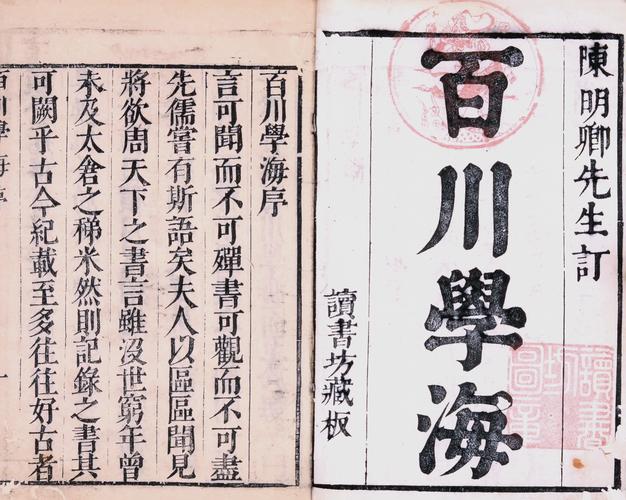 陳明卿先生訂
百川學海
讀書坊藏板
百川學海序
言可聞而不可殫書可觀而不可盡
先儒嘗有斯語矣夫人以區區聞見
將欲周天下之書言雖沒世窮年曾
未及太倉之稊米然則記錄之書其
可闕乎古今紀載至多往往好古者
百川學海序
一